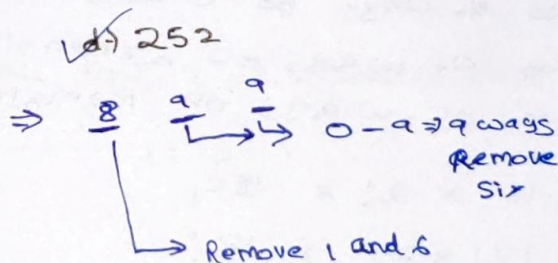 d.) 252
⇒ 8 9 9 0 - 9 ⇒ 9 ways
Remove
Six
Remove 1 and 6